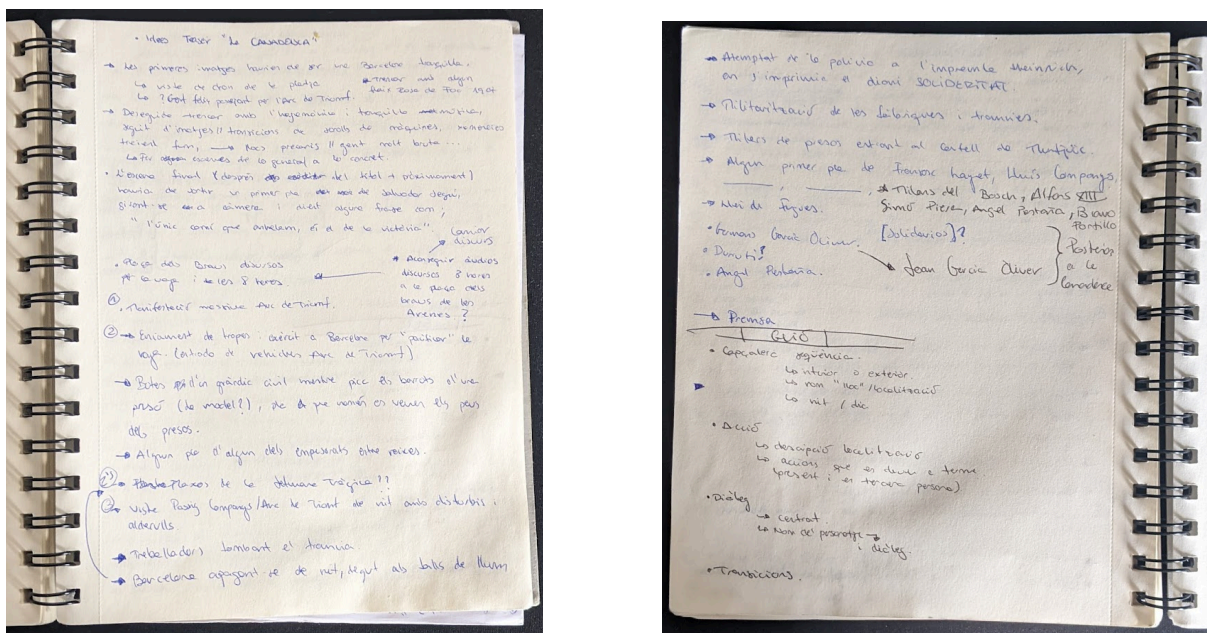 • Idees Teaser "La CANADENCA"
→ Les primeres imatges haurien de ser una Barcelona tranquil·la.
↳ vista de dron de la platja
↳ ? Gent feliç passejant per l'Arc de Triomf.
→ Trencar amb algun
→ Desseguida trencar amb l'hegemonia i tranquil·la música,
seguit d'imatges // transicions de sorolls de màquines, xemeneies
treient fum, → Nens precaris // gent molt bruta ...
↳ Fer escenes de lo general a lo concret.
• L'escena final (després del títol + pròximament)
hauria de sortir un primer pla de Salvador Seguí,
girant-se a càmera i dient alguna frase com;
"l'únic camí que anhelam, és el de la victòria".
Canviar
discurs
• Plaça dels Braus discursos
per la vaga i de les 8 hores.
* Aconseguir àudios
discursos 8 hores
a la plaça dels
braus de les
Arenes ?
① . Manifestació massiva Arc de Triomf.
② → Enviament de tropes i exèrcit a Barcelona per "pacificar" la
vaga. (entrada de vehicles Arc de Triomf)
→ Botes d'un guàrdia civil mentre pica els barrots d'una
presó (la model?), pla de que només es veuen els peus
dels presos.
→ Algun pla d'algun dels empresonats entre reixes.
→ Flaxos de la Setmana Tràgica ??
→ Vista Passeig Companys/Arc de Triomf de nit amb disturbis i
aldarulls.
→ Treballadors tombant el tramvia
→ Barcelona apagant-se de nit, degut als talls de llum
→ Atemptat de la policia a l'impremta Heinrich,
on s'imprimia el diari SOLIDERITAT.
→ Militarització de les fàbriques i tramvies.
→ Milers de presos entrant al castell de Montjuïc.
→ Algun primer pla de Francesc Layret, Lluís Companys,
* Milans del Bosch, Alfons XIII
Simó Piera, Angel Pestaña, Bravo
Portillo
→ Llei de Fugues.
• Germans Garcia Oliver. [Solidarios]?
• Durruti?
→ Joan Garcia Oliver
• Angel Pestaña.
Posterior
a la
Canadenca
→ Premsa
GUIÓ
• Capçalera seqüència.
↳ interior o exterior.
↳ nom "lloc"/localització
↳ nit / dia
• Acció
↳ descripció localització
↳ accions que es duen a terme
(present i en tercera persona)
• Diàleg
→ centrat.
↳ Nom del personatge →
i diàleg.
• Transicions.